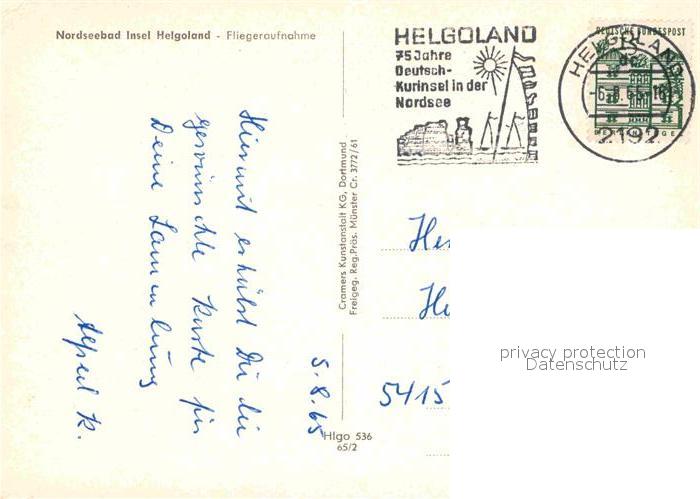 Nordseebad Insel Helgoland - Fliegeraufnahme
HELGOLAND
75 Jahre
Deutsch-
Kurinsel in der
Nordsee
DEUTSCHE BUNDESPOST
HELGOLAND
2192
Hiermit erhälst Du die
gewünschte Karte für
Deine Sammlung
Alfred K.
5.8.65
Cramers Kunstanstalt KG, Dortmund
Freigeg. Reg.Präs. Münster Cr. 3772/61
He
H
5415
Hlgo 536
65/2
privacy protection
Datenschutz